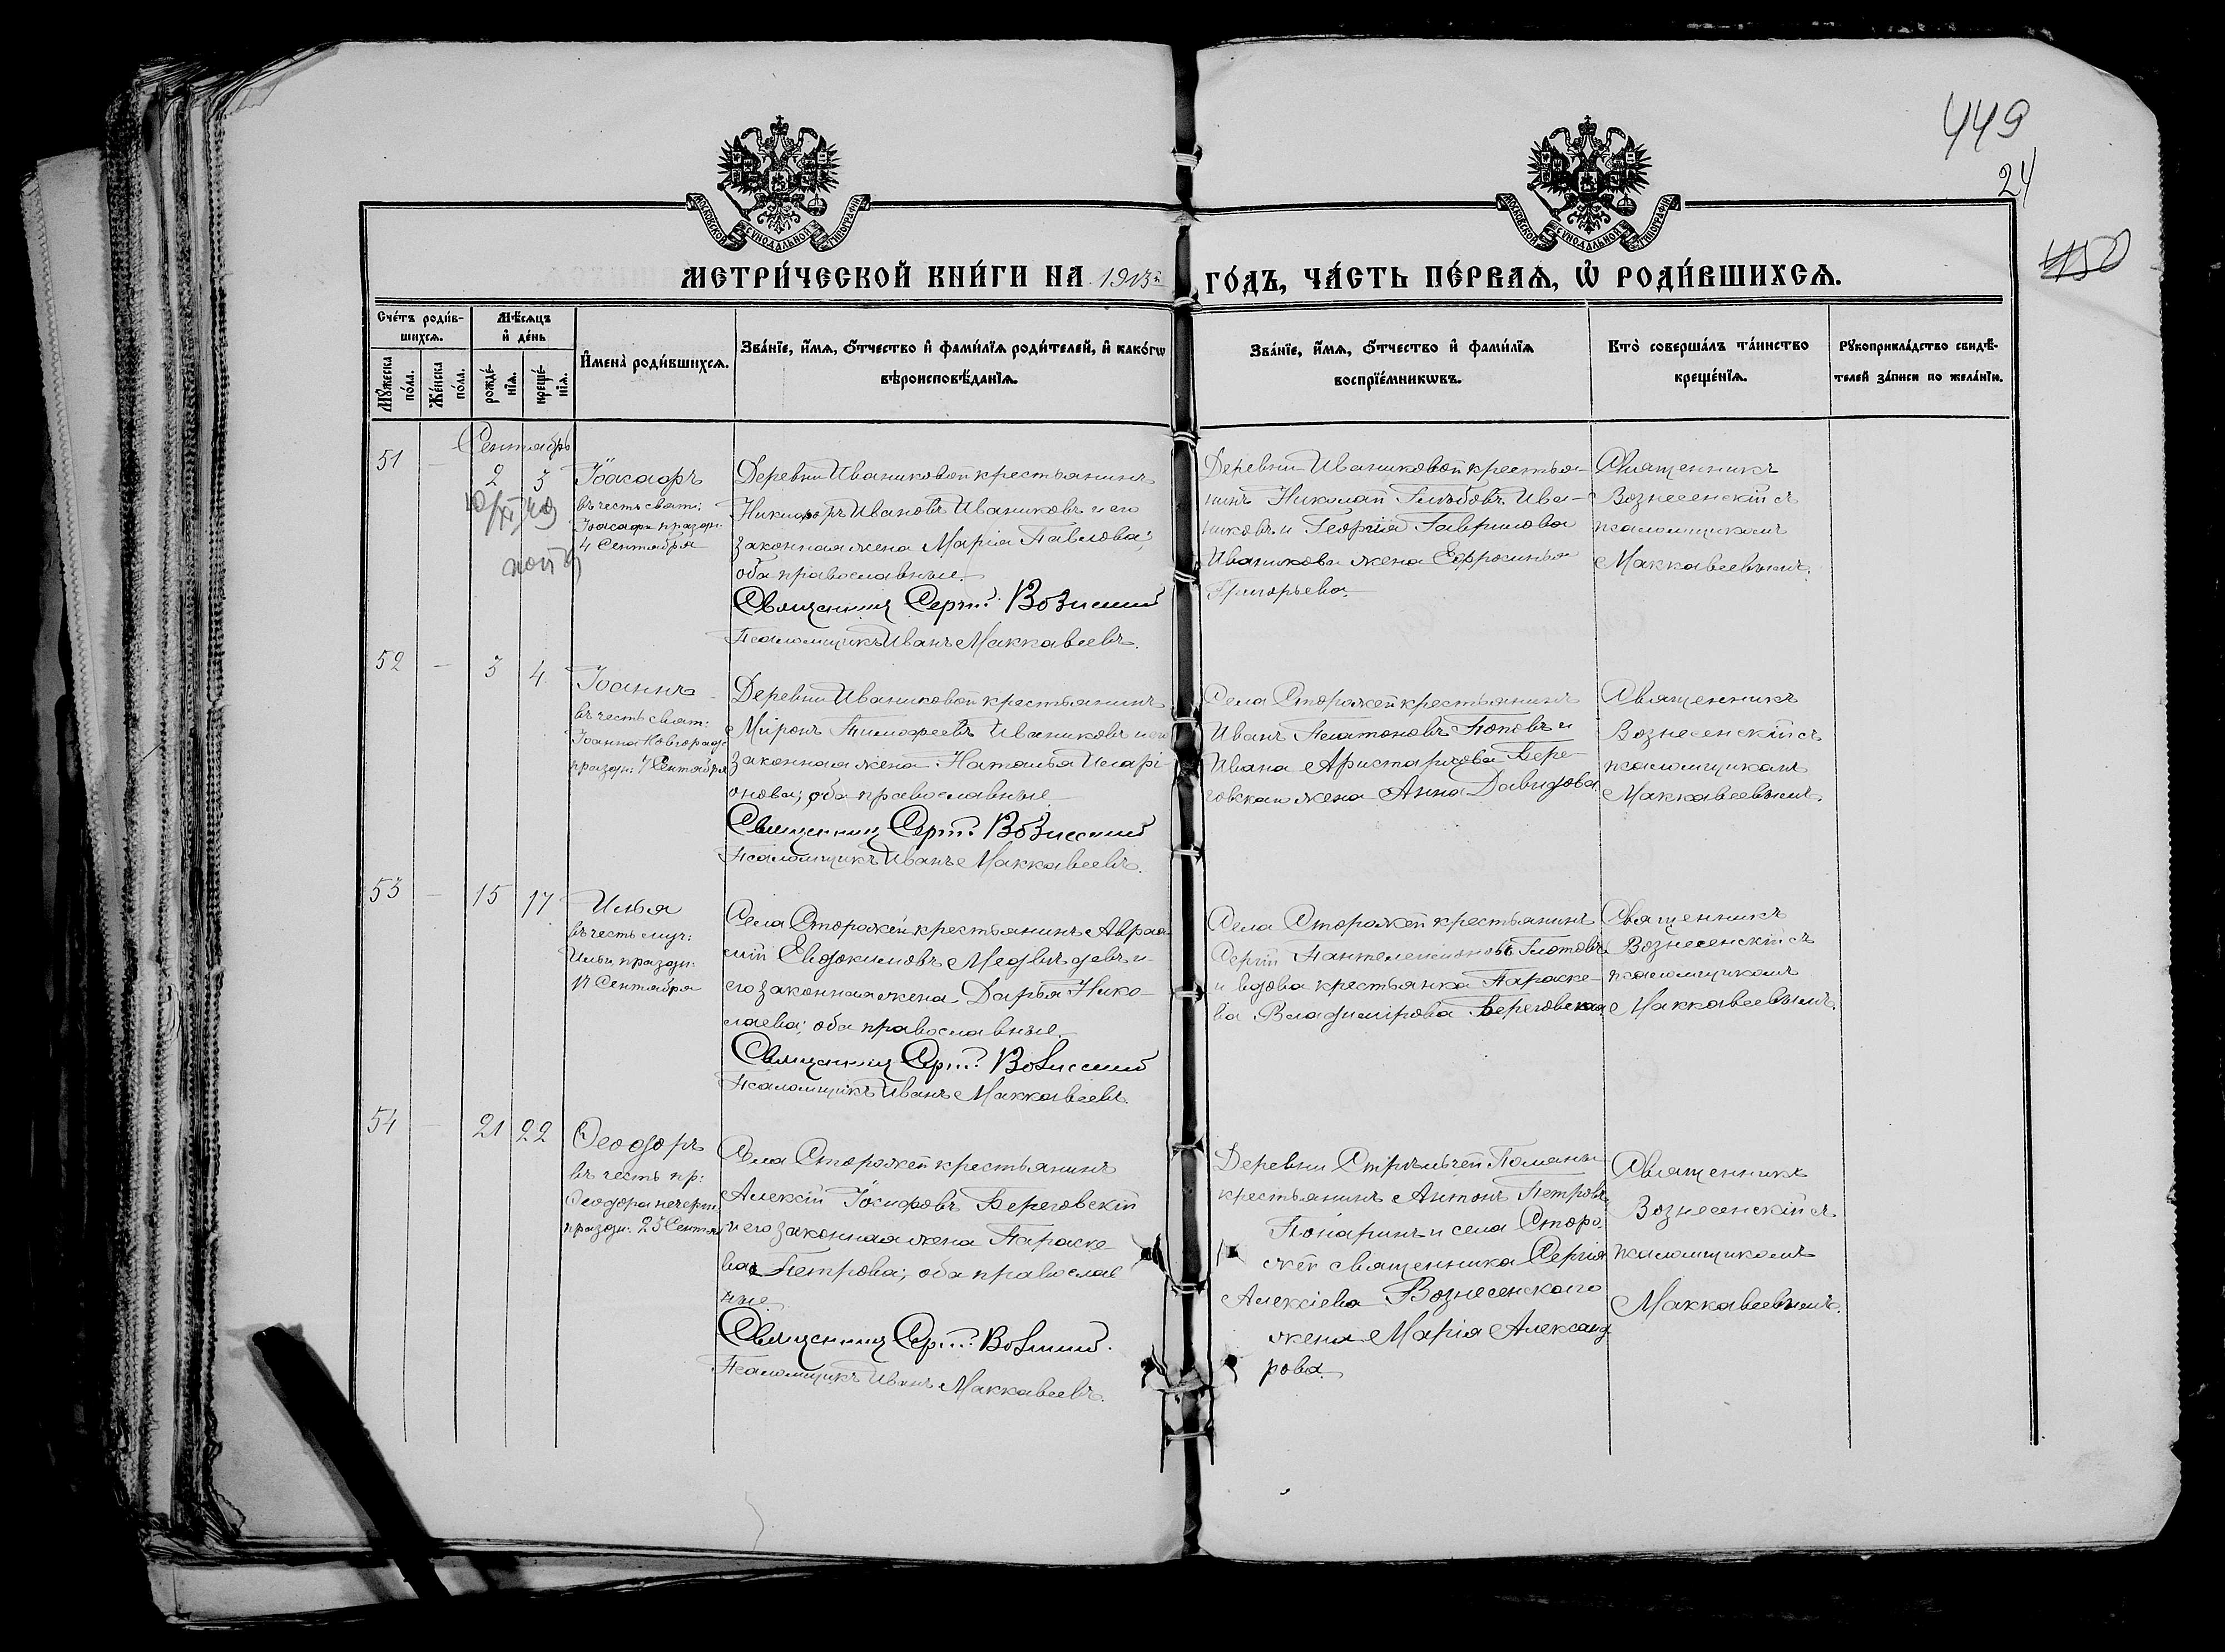 449
24
450
МОСКОВСКОЙ СУНОДАЛЬНОЙ ТИПОГРАФІИ
МОСКОВСКОЙ СУНОДАЛЬНОЙ ТИПОГРАФІИ
МЕТРИ́ЧЕСКОЙ КНИ́ГИ НА 1913й ГО́ДЪ, ЧА́СТЬ ПЕ́РВАѦ, Ѡ҆ РОДИ́ВШИХСѦ.
Сче́тъ роди́в-
шихсѧ.
Мꙋ́жеска по́ла.
Же́нска по́ла.
Мѣ́сѧцъ
и҆ де́нь
рожде́-
нїѧ.
креще́-
нїѧ.
И҆мена̀ роди́вшихсѧ.
Зва́нїе, и҆́мѧ, ѻ҆́тчество и҆ фами́лїѧ роди́телей, и҆ како́гѡ
вѣроисповѣ́данїѧ.
Зва́нїе, и҆́мѧ, ѻ҆́тчество и҆ фами́лїѧ
воспрїе́мникѡвъ.
Кто̀ соверша́лъ та́инство
креще́нїѧ.
Рꙋкоприкла́дство свидѣ́-
телей за́писи по жела́нїю.
Сентябрь
51
—
2
3
Іоасафъ
въ честь свят:
Іоасафа праздн:
4 Сентября
Деревни Иваниковой крестьянинъ
Никифоръ Ивановъ Иваниковъ и его
законная жена Марія Павлова;
оба православные.
Священникъ Сергій Вознесенскій
Псаломщикъ Иванъ Маккавеевъ.
Деревни Иваниковой крестья-
нинъ Николай Глѣбовъ Ива-
никовъ и Георгія Гаврилова
Иваникова жена Ефросинья
Григорьева.
Священникъ
Вознесенскій съ
псаломщикомъ
Маккавеевымъ.
52
—
3
4
Іоаннъ
въ честь свят:
Іоанна Новгородс
праздн: 7 Сентября
Деревни Иваниковой крестьянинъ
Міронъ Тимофеевъ Иваниковъ и его
законная жена Наталья Иларі-
онова; оба православные.
Священникъ Сергій Вознесенскій
Псаломщикъ Иванъ Маккавеевъ.
Села Сторожей крестьянинъ
Иванъ Платоновъ Поповъ и
Ивана Аристархова Бере-
говская жена Анна Давидова.
Священникъ
Вознесенскій съ
псаломщикомъ
Маккавеевымъ.
53
—
15
17
Илья
въ честь муч:
Ильи, праздн:
17 Сентября
Села Сторожей крестьянинъ Авраа-
мій Евдокимовъ Медвѣдевъ и
его законная жена Дарья Нико-
лаева; оба православные.
Священникъ Сергій Вознесенскій
Псаломщикъ Иванъ Маккавеевъ.
Села Сторожей крестьянинъ
Сергій Пантелеимоновъ Глотовъ
и вдова крестьянка Параске-
ва Владимірова Береговская
Священникъ
Вознесенскій съ
псаломщикомъ
Маккавеевымъ.
54
—
21
22
Ѳеодоръ
въ честь пр:
Ѳеодора печерск
праздн: 23 Сентяб
Села Сторожей крестьянинъ
Алексій Іосифовъ Береговскій
и его законная жена Параске
ва Петрова; оба православ
ные.
Священникъ Сергій Вознесенскій.
Псаломщикъ Иванъ Маккавеевъ.
Деревни Стрѣлечей Поляны
крестьянинъ Антонъ Петровъ
и села Сторо-
жей священника Сергія
Алексіева Вознесенскаго
жена Марія Александ
рова.
Священникъ
Вознесенскій съ
псаломщикомъ
Маккавеевымъ.